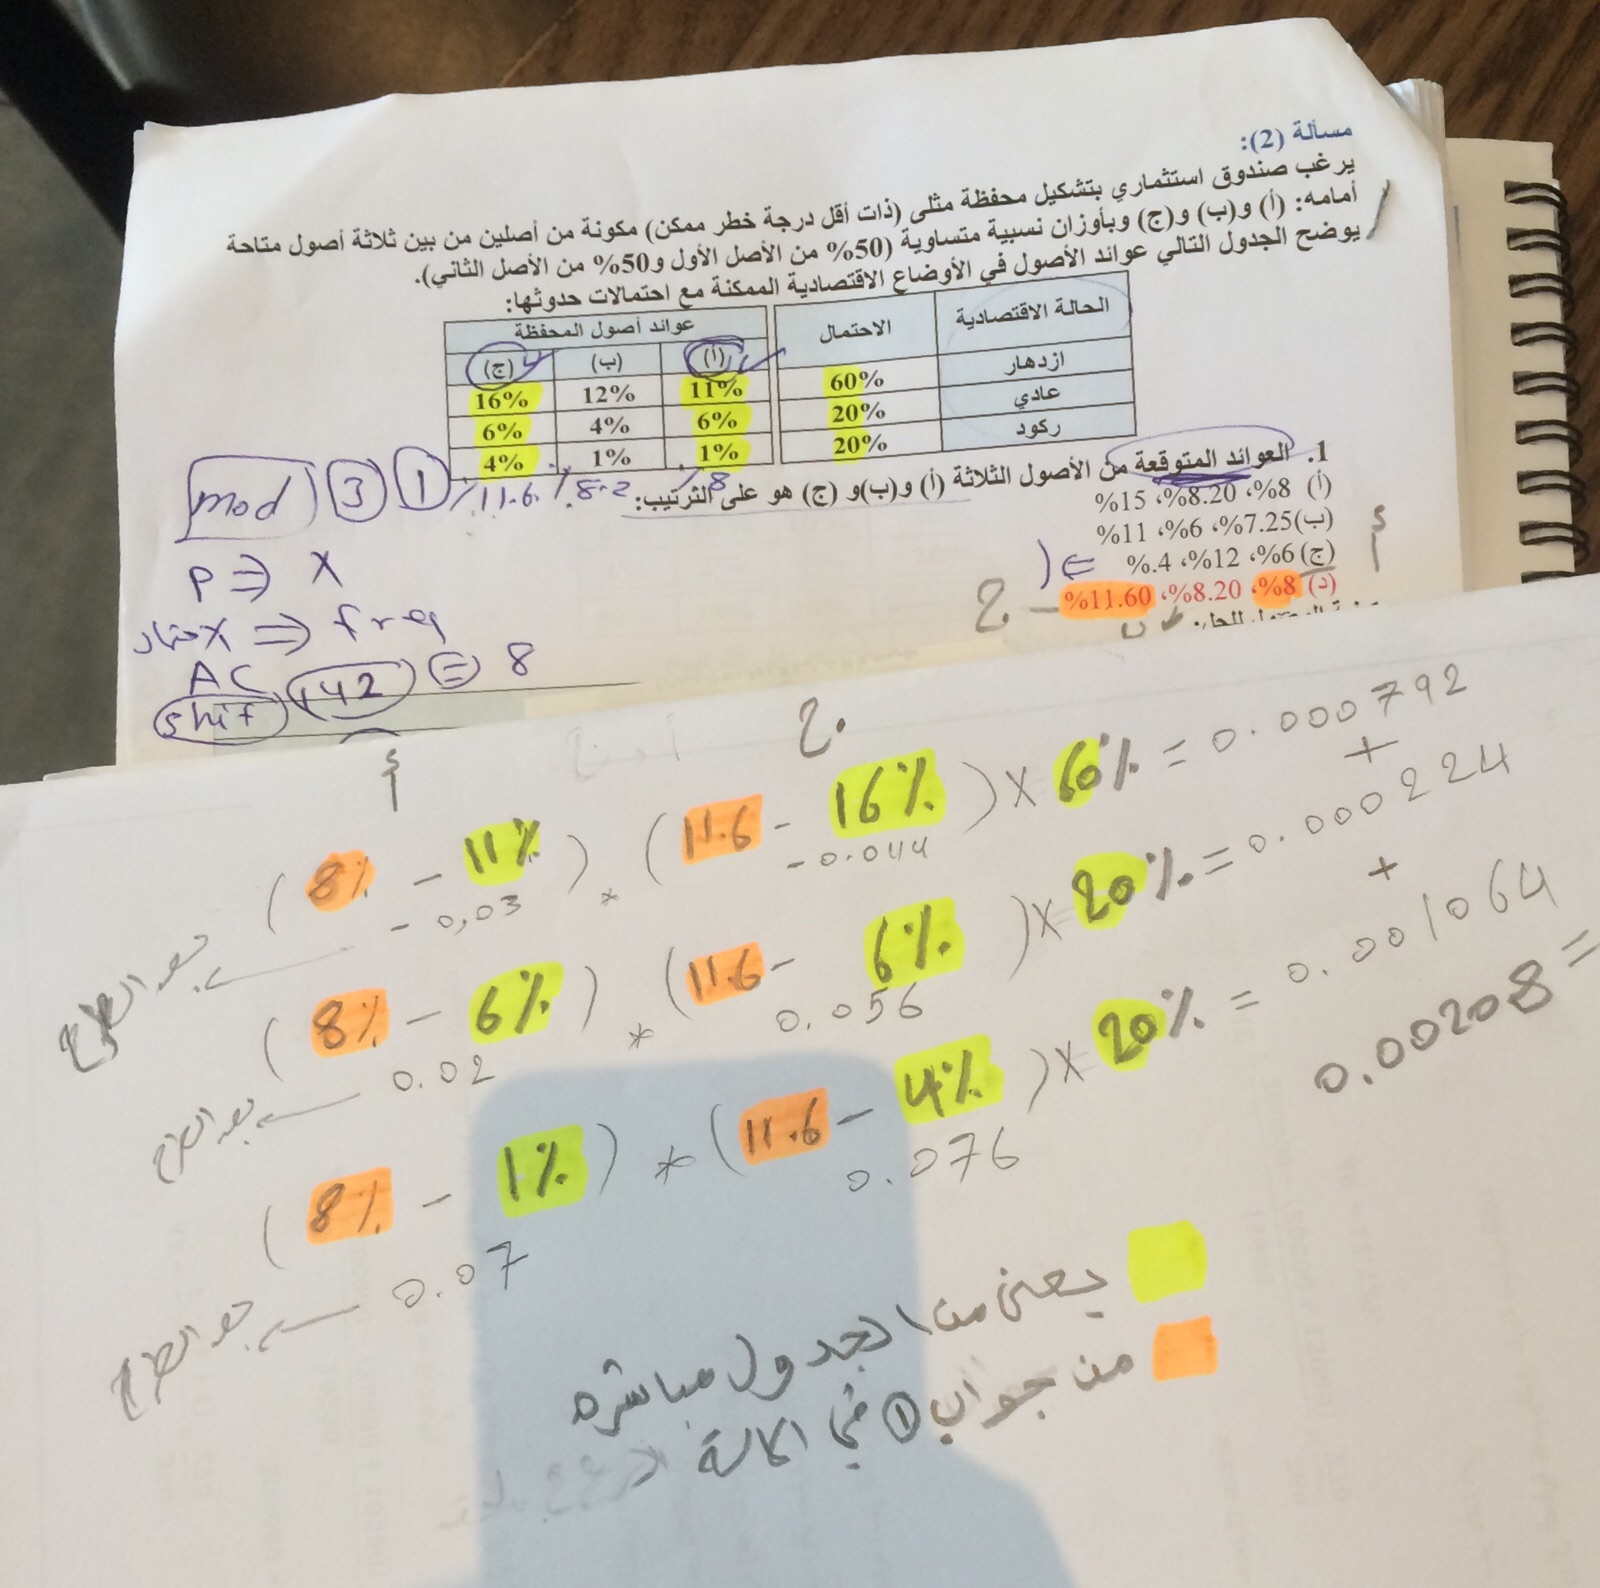 مسألة (2):
يرغب صندوق استثماري بتشكيل محفظة مثلى (ذات أقل درجة خطر ممكن) مكونة من أصلين من بين ثلاثة أصول متاحة
أمامه: (أ) و(ب) و(ج) وبأوزان نسبية متساوية (50% من الأصل الأول و50% من الأصل الثاني).
يوضح الجدول التالي عوائد الأصول في الأوضاع الاقتصادية الممكنة مع احتمالات حدوثها:
الحالة الاقتصادية الاحتمال عوائد أصول المحفظة
(أ) (ب) (ج)
ازدهار 60% 11% 12% 16%
عادي 20% 6% 4% 6%
ركود 20% 1% 1% 4%
8% 8.2% 11.6%
1. العوائد المتوقعة من الأصول الثلاثة (أ) و(ب)و (ج) هو على الترتيب:
(أ) 8%، 8.20%، 15%
(ب)7.25%، 6%، 11%
(ج) 6%، 12%، 4%.
(د) 8%، 8.20%، 11.60%
أ
ج
mod 3 1
P ⇒ X
X ⇒ freq
AC
shift 142 = 8
أ ج
( 8% - 11% ) * ( 11.6 - 16% ) × 60% = 0.000792
- 0.03 - 0.044
+
بعد الطرح
( 8% - 6% ) * ( 11.6 - 6% ) × 20% = 0.000224
0.02 0.056
+
بعد الطرح
( 8% - 1% ) * ( 11.6 - 4% ) × 20% = 0.001064
0.07 0.076
بعد الطرح
0.00208 =
يعني من الجدول مباشره
من جواب 1 في